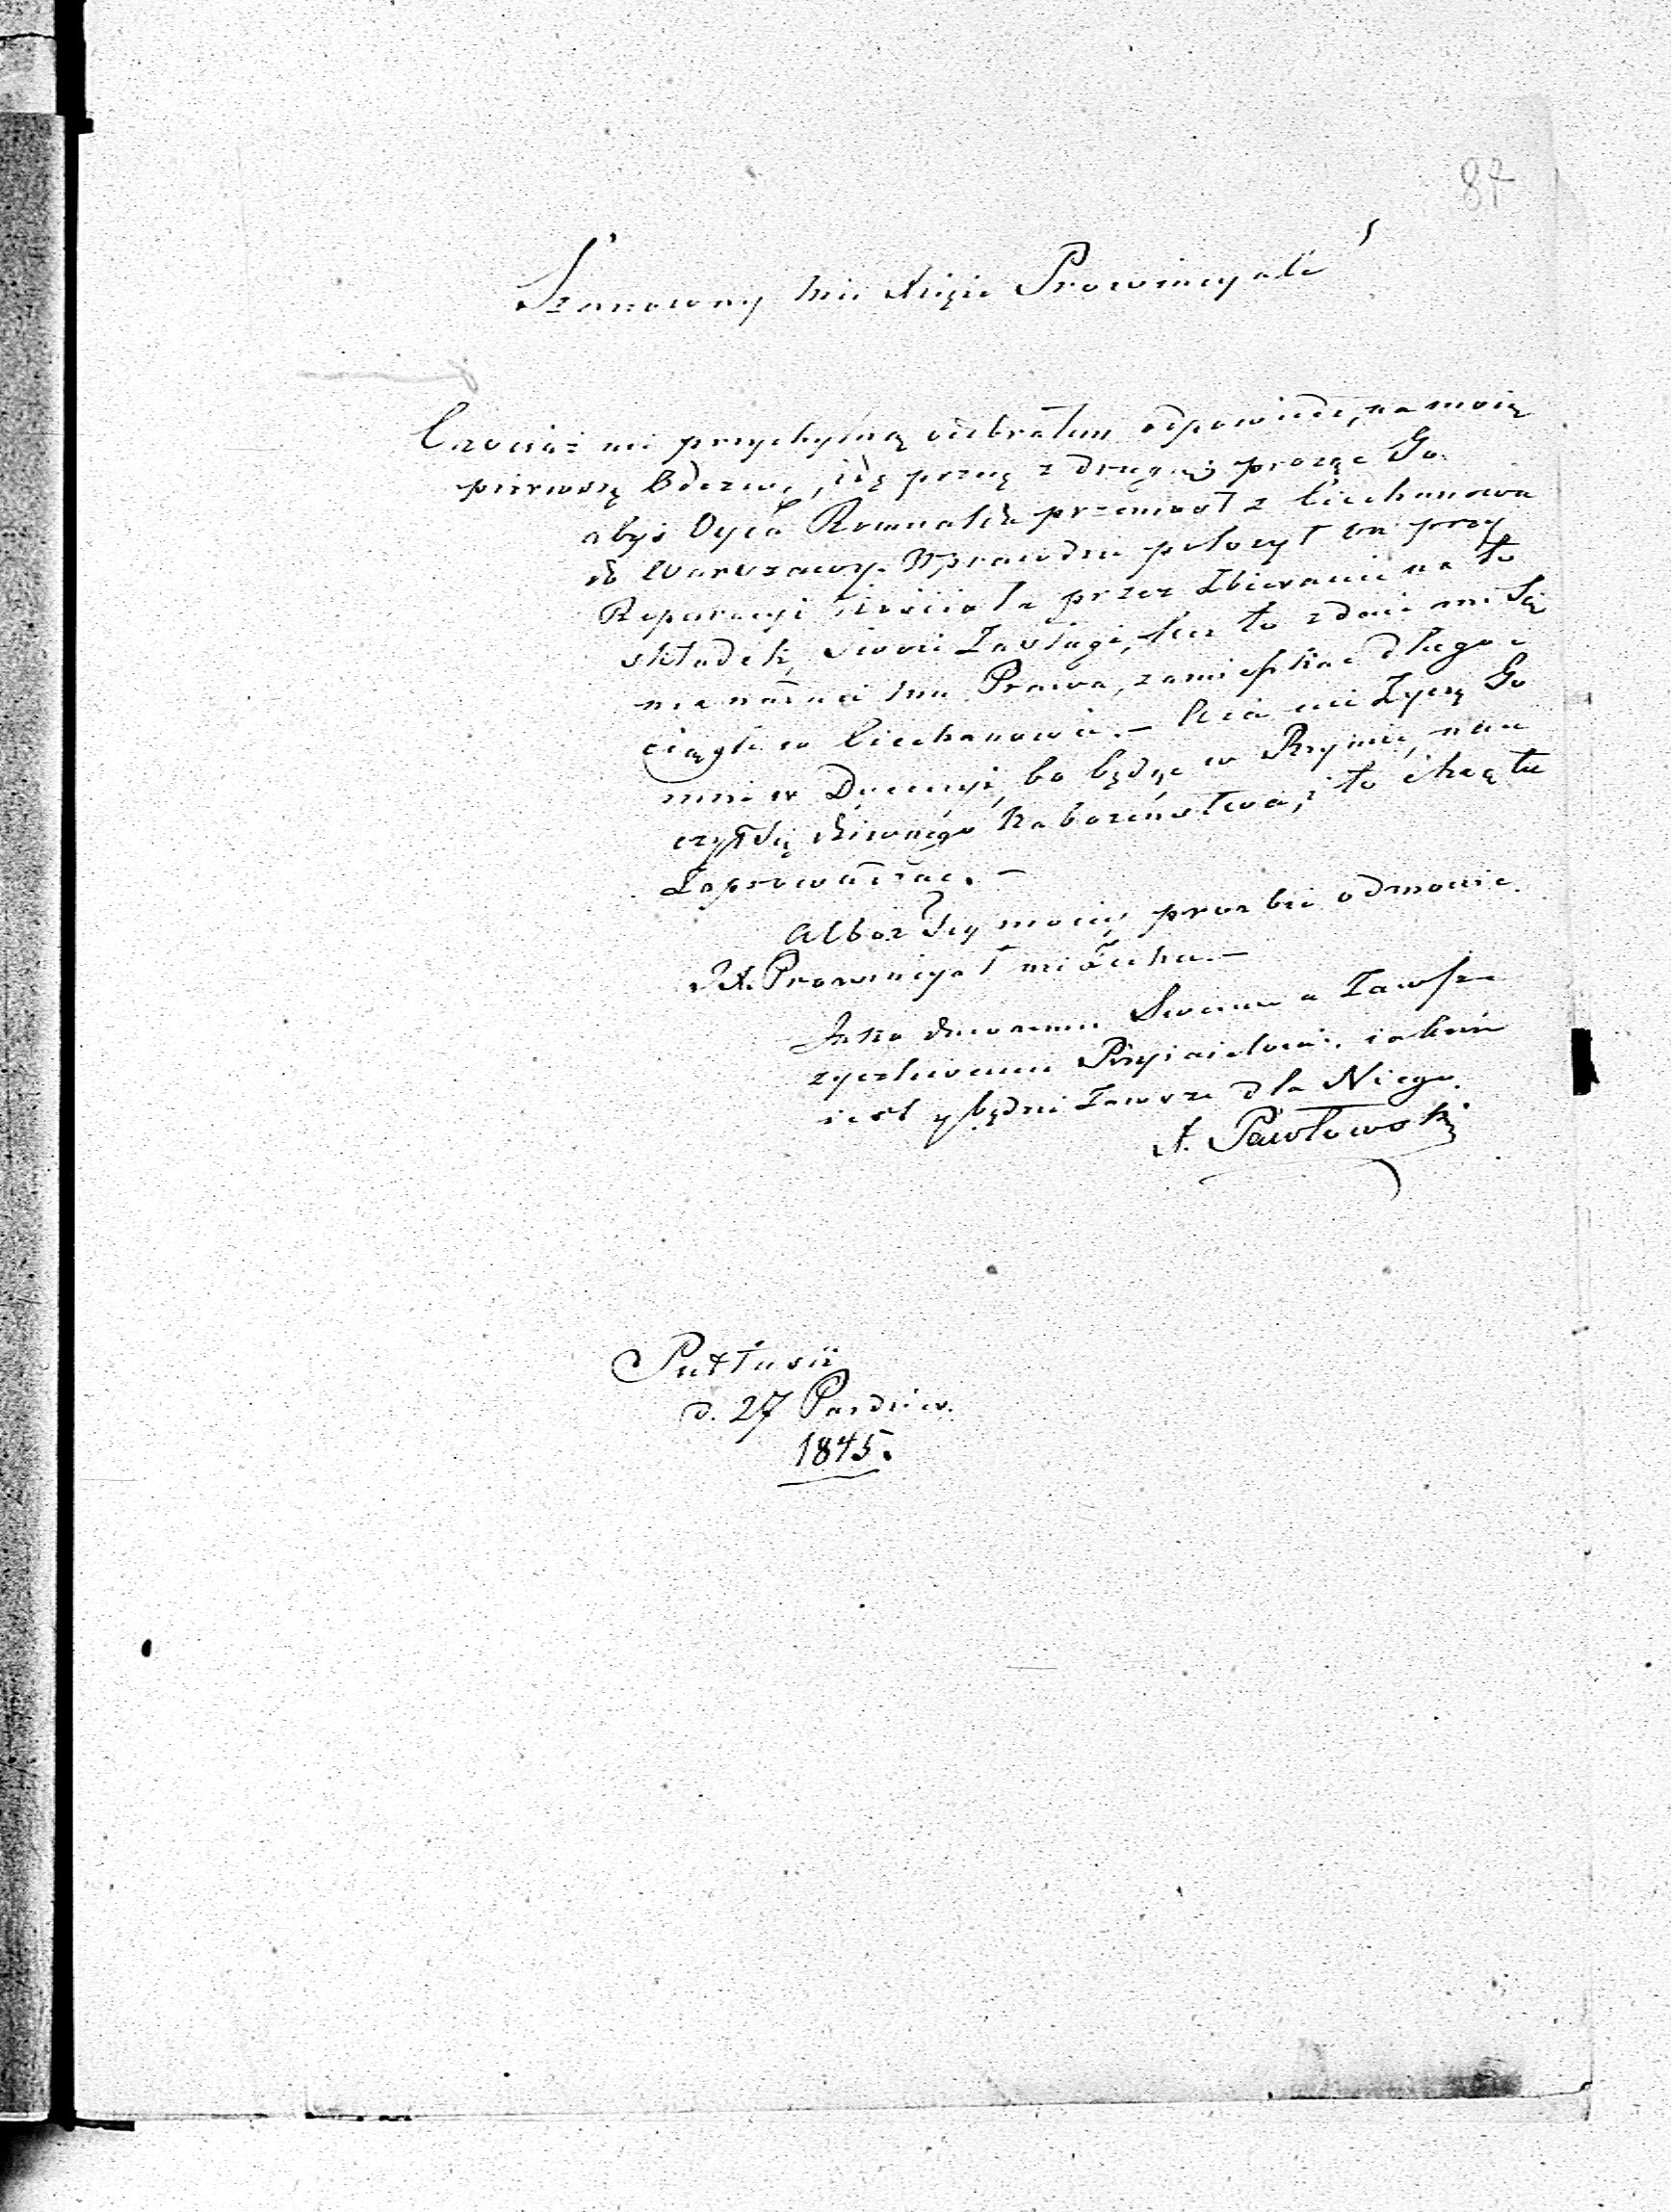 87
Szanowny Mci Xięże Prowincyale
Chociaż nie przychylną odebrałem odpowiedź, na moię
pierwszę Odezwę, idę poznę z drugą prosząc Go
abyś Oyca Romualda przeniósł z Ciechanowa
do Warszawy. Wprawdzie położył on przy
Reparacyi Kościoła przez Zbieranie na to
składek, swoie Zasługi, lecz to zdaie mi Się
nie nadaie mu Prawa, zamieszkać długo i
ciągle w Ciechanowie. – Nie życzę Go
mieć w Dyecezyi, bo będąc w Rzymie, nau
czył się dziwnego Nabożeństwa, i to chce tu
Zaprowadzać. –
Alboż Się moiey prozbie odmówi
X. Prowincyał nie
Jako Swemu a Zawsze
życzliwemu Przyiacielowi, iakim
iest y będzie Zawsze dla Niego.
A. Pawłowski
Pułtusk
d. 27 Paździer.
1845.